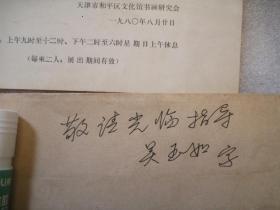 天津市和平区文化馆书画研究会
一九八〇年八月廿日
：上午九时至十二时、下午二时至六时星期日上午休息
（每柬二人，展出期间有效）
敬请光临指导
吴玉如字